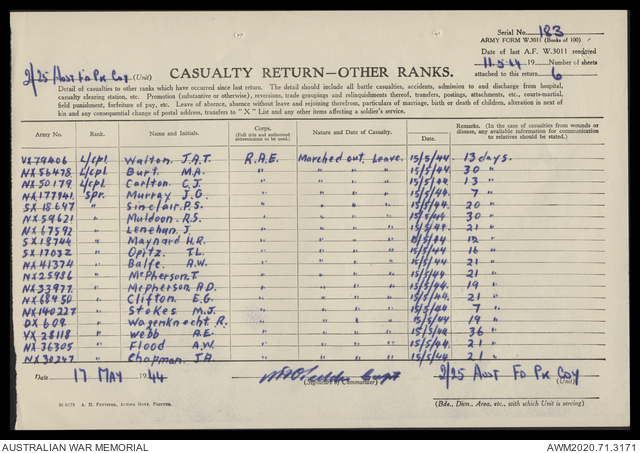 Serial No. 183
ARMY FORM W.3011 (Books of 100)
Date of last A.F. W.3011 rendered
11.5.44 19 Number of sheets
attached to this return 6
2/25 Aust Fd Pk Coy (Unit)
CASUALTY RETURN—OTHER RANKS.
Detail of casualties to other ranks which have occurred since last return. The detail should include all battle casualties, accidents, admission to and discharge from hospital,
casualty clearing station, etc. Promotion (substantive or otherwise), reversions, trade groupings and relinquishments thereof, transfers, postings, attachments, etc., courts-martial,
field punishment, forfeiture of pay, etc. Leave of absence, absence without leave and rejoining therefrom, particulars of marriage, birth or death of children, alteration in next of
kin and any consequential change of postal address, transfers to "X" List and any other items affecting a soldier's service.
Army No. Rank. Name and Initials. Corps. (Full title and authorized abbreviations to be used.) Nature and Date of Casualty. Date. Remarks. (In the case of casualties from wounds or disease, any available information for communication to relatives should be stated.)
VX79406 L/cpl Walton J.A.T. R.A.E. Marched out Leave. 15/5/44. 13 days.
NX56478 L/cpl Burt. M.A. " " " " 15/5/44. 30 "
NX50179 L/cpl Carlton C.J. " " " " 15/5/44. 13 "
NX177941 Spr. Murray J.G. " " " " 15/5/44. 7 "
SX18647 " Sinclair P.S. " " " " 15/5/44. 20 "
NX59621 " Muldoon R.S. " " " " 15/5/44. 30 "
NX67592 " Lenehan J. " " " " 15/5/44. 21 "
SX18744 " Maynard H.R. " " " " 15/5/44 12 "
SX17032 " Opitz T.L. " " " " 15/5/44 16 "
NX41374 " Balfe. A.W. " " " " 15/5/44. 21 "
NX25986 " McPherson.T " " " " 15/5/44. 21 "
NX33977 " McPherson A.D. " " " " 15/5/44. 19 "
NX68450 " Clifton E.G. " " " " 15/5/44. 21 "
NX140227 " Stokes M.J. " " " " 15/5/44 7 "
DX609. " Wagenknecht R. " " " " 15/5/44. 19 "
VX28118 " Webb A.E. " " " " 15/5/44. 36 "
NX36305 " Flood A.W. " " " " 15/5/44. 21 "
NX30247 " Chapman J.A. " " " " 15/5/44. 21 "
Date 17 MAY 1944 Capt 2/25 Aust Fd Pk Coy
(Signature of Commander) (Unit)
A. H. PETTIFER, ACTING GOVT. PRINTER.
(Bde., Divn., Area, etc., with which Unit is serving)
AUSTRALIAN WAR MEMORIAL AWM2020.71.3171